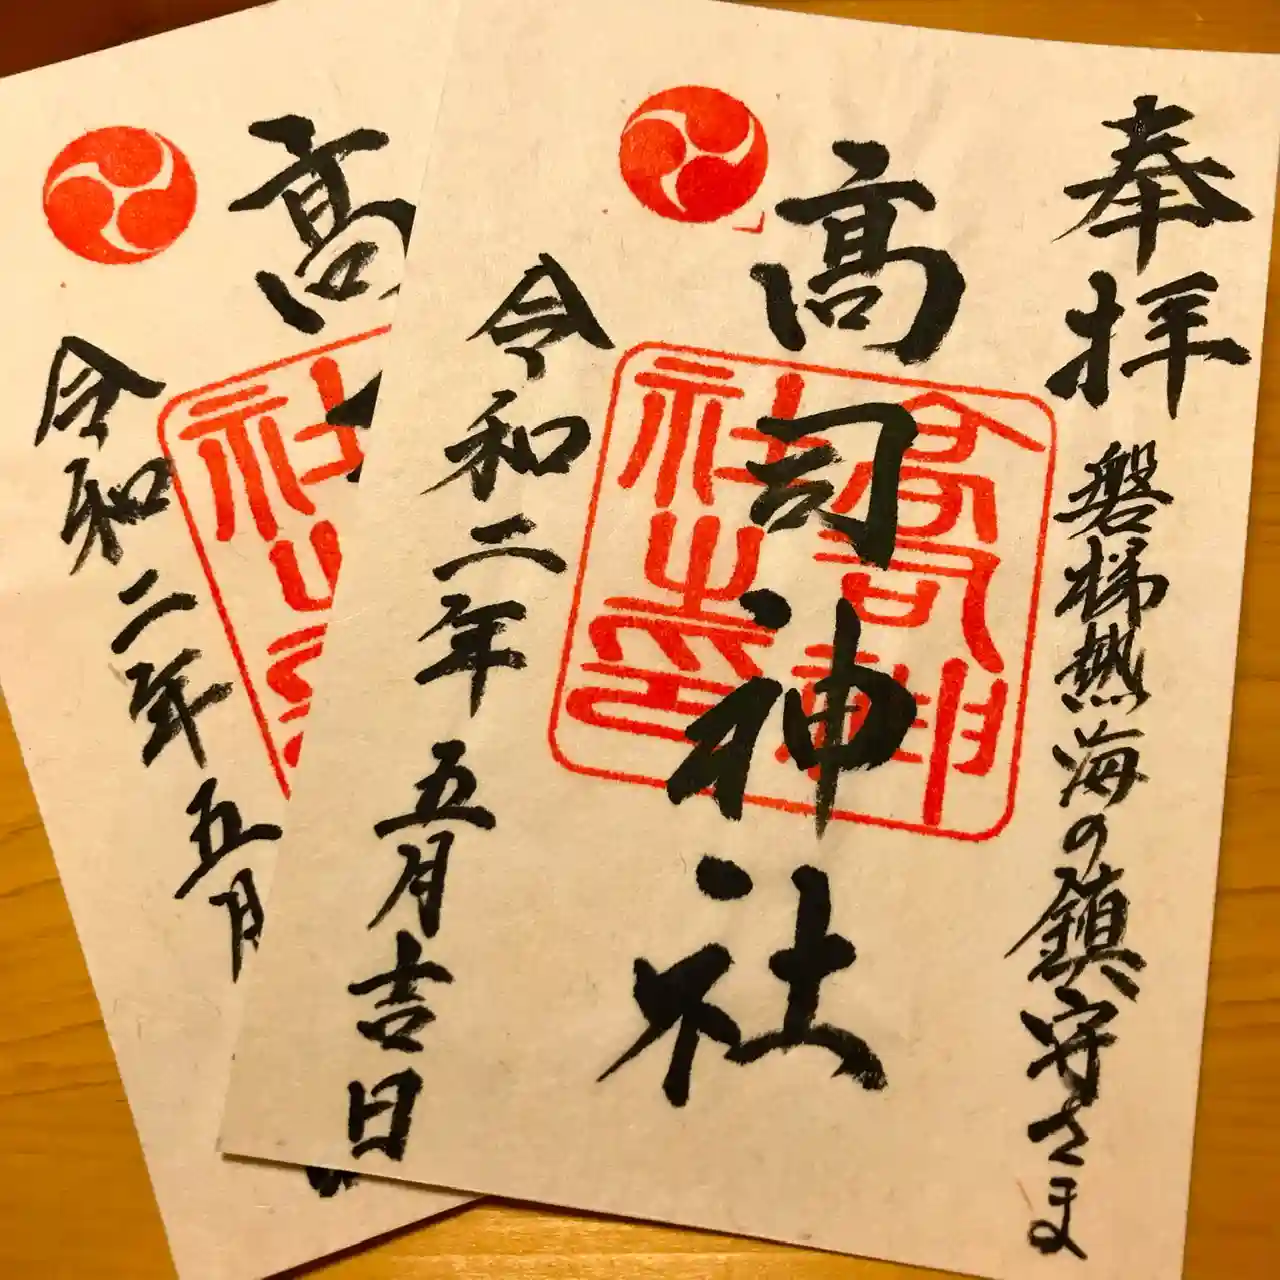 奉拝
磐梯熱海の鎮守さま
髙司神社
高司神社之印
令和二年
五月吉日
髙
社之印
令和二年
五月